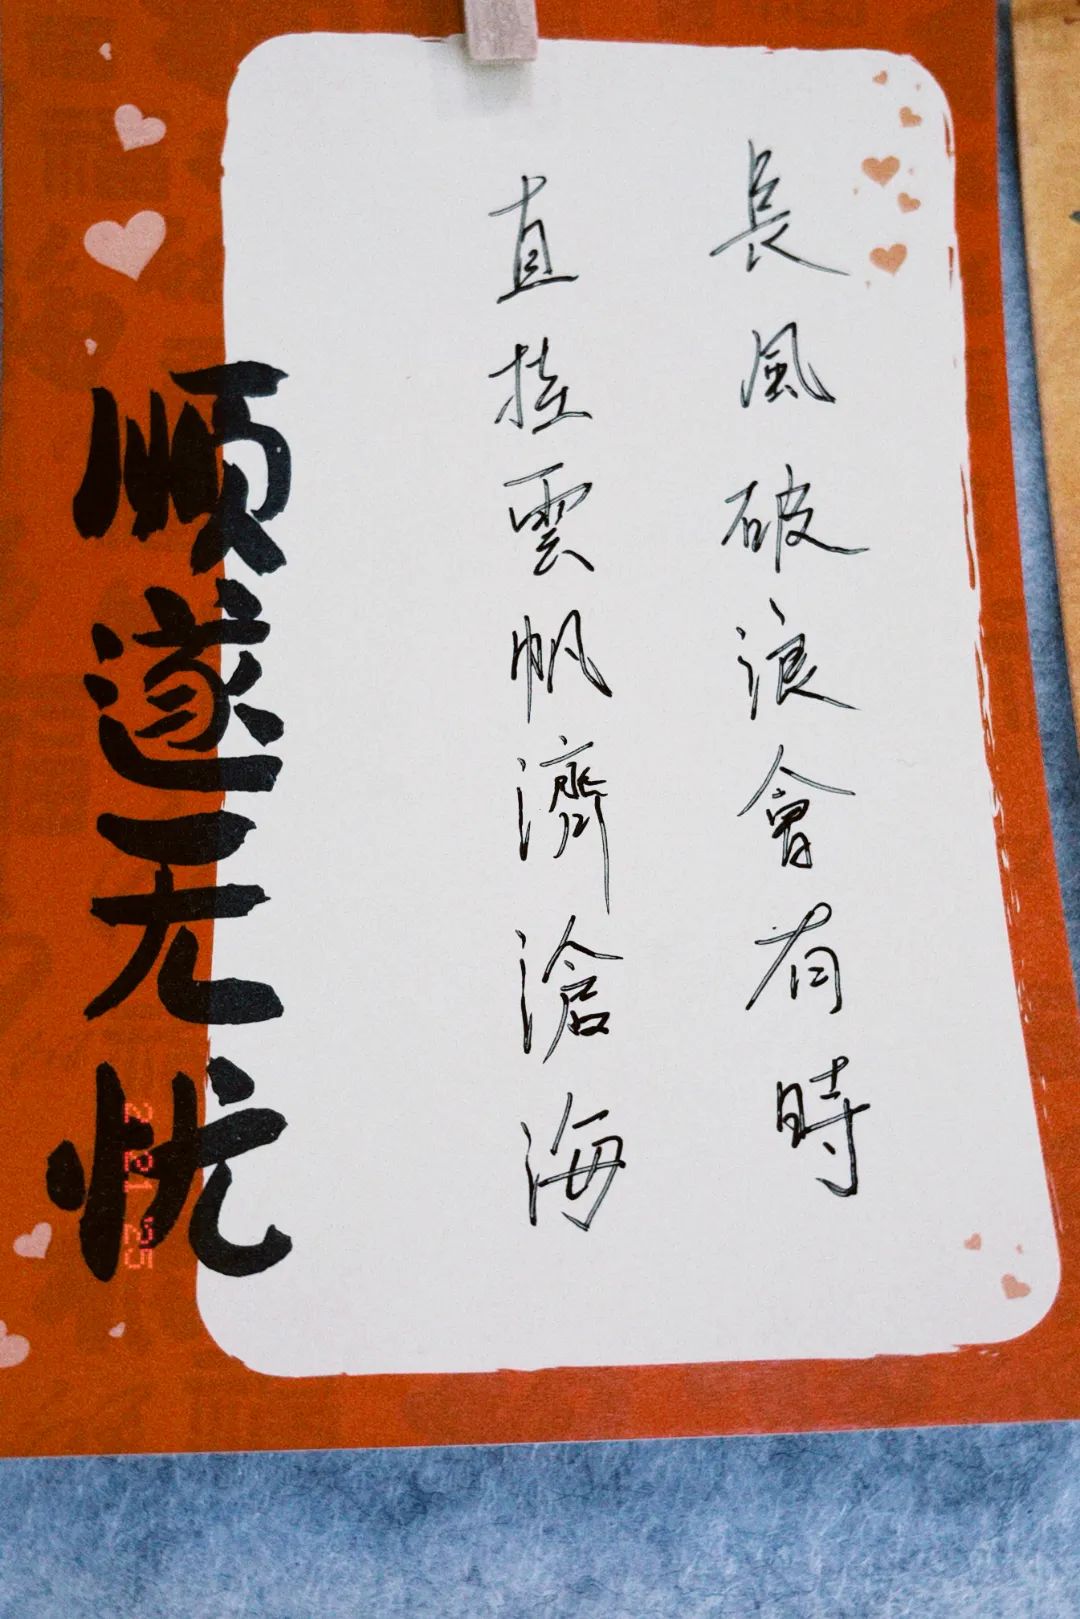 長風破浪會有時
直挂雲帆濟滄海
顺遂无忧
2 21 '25